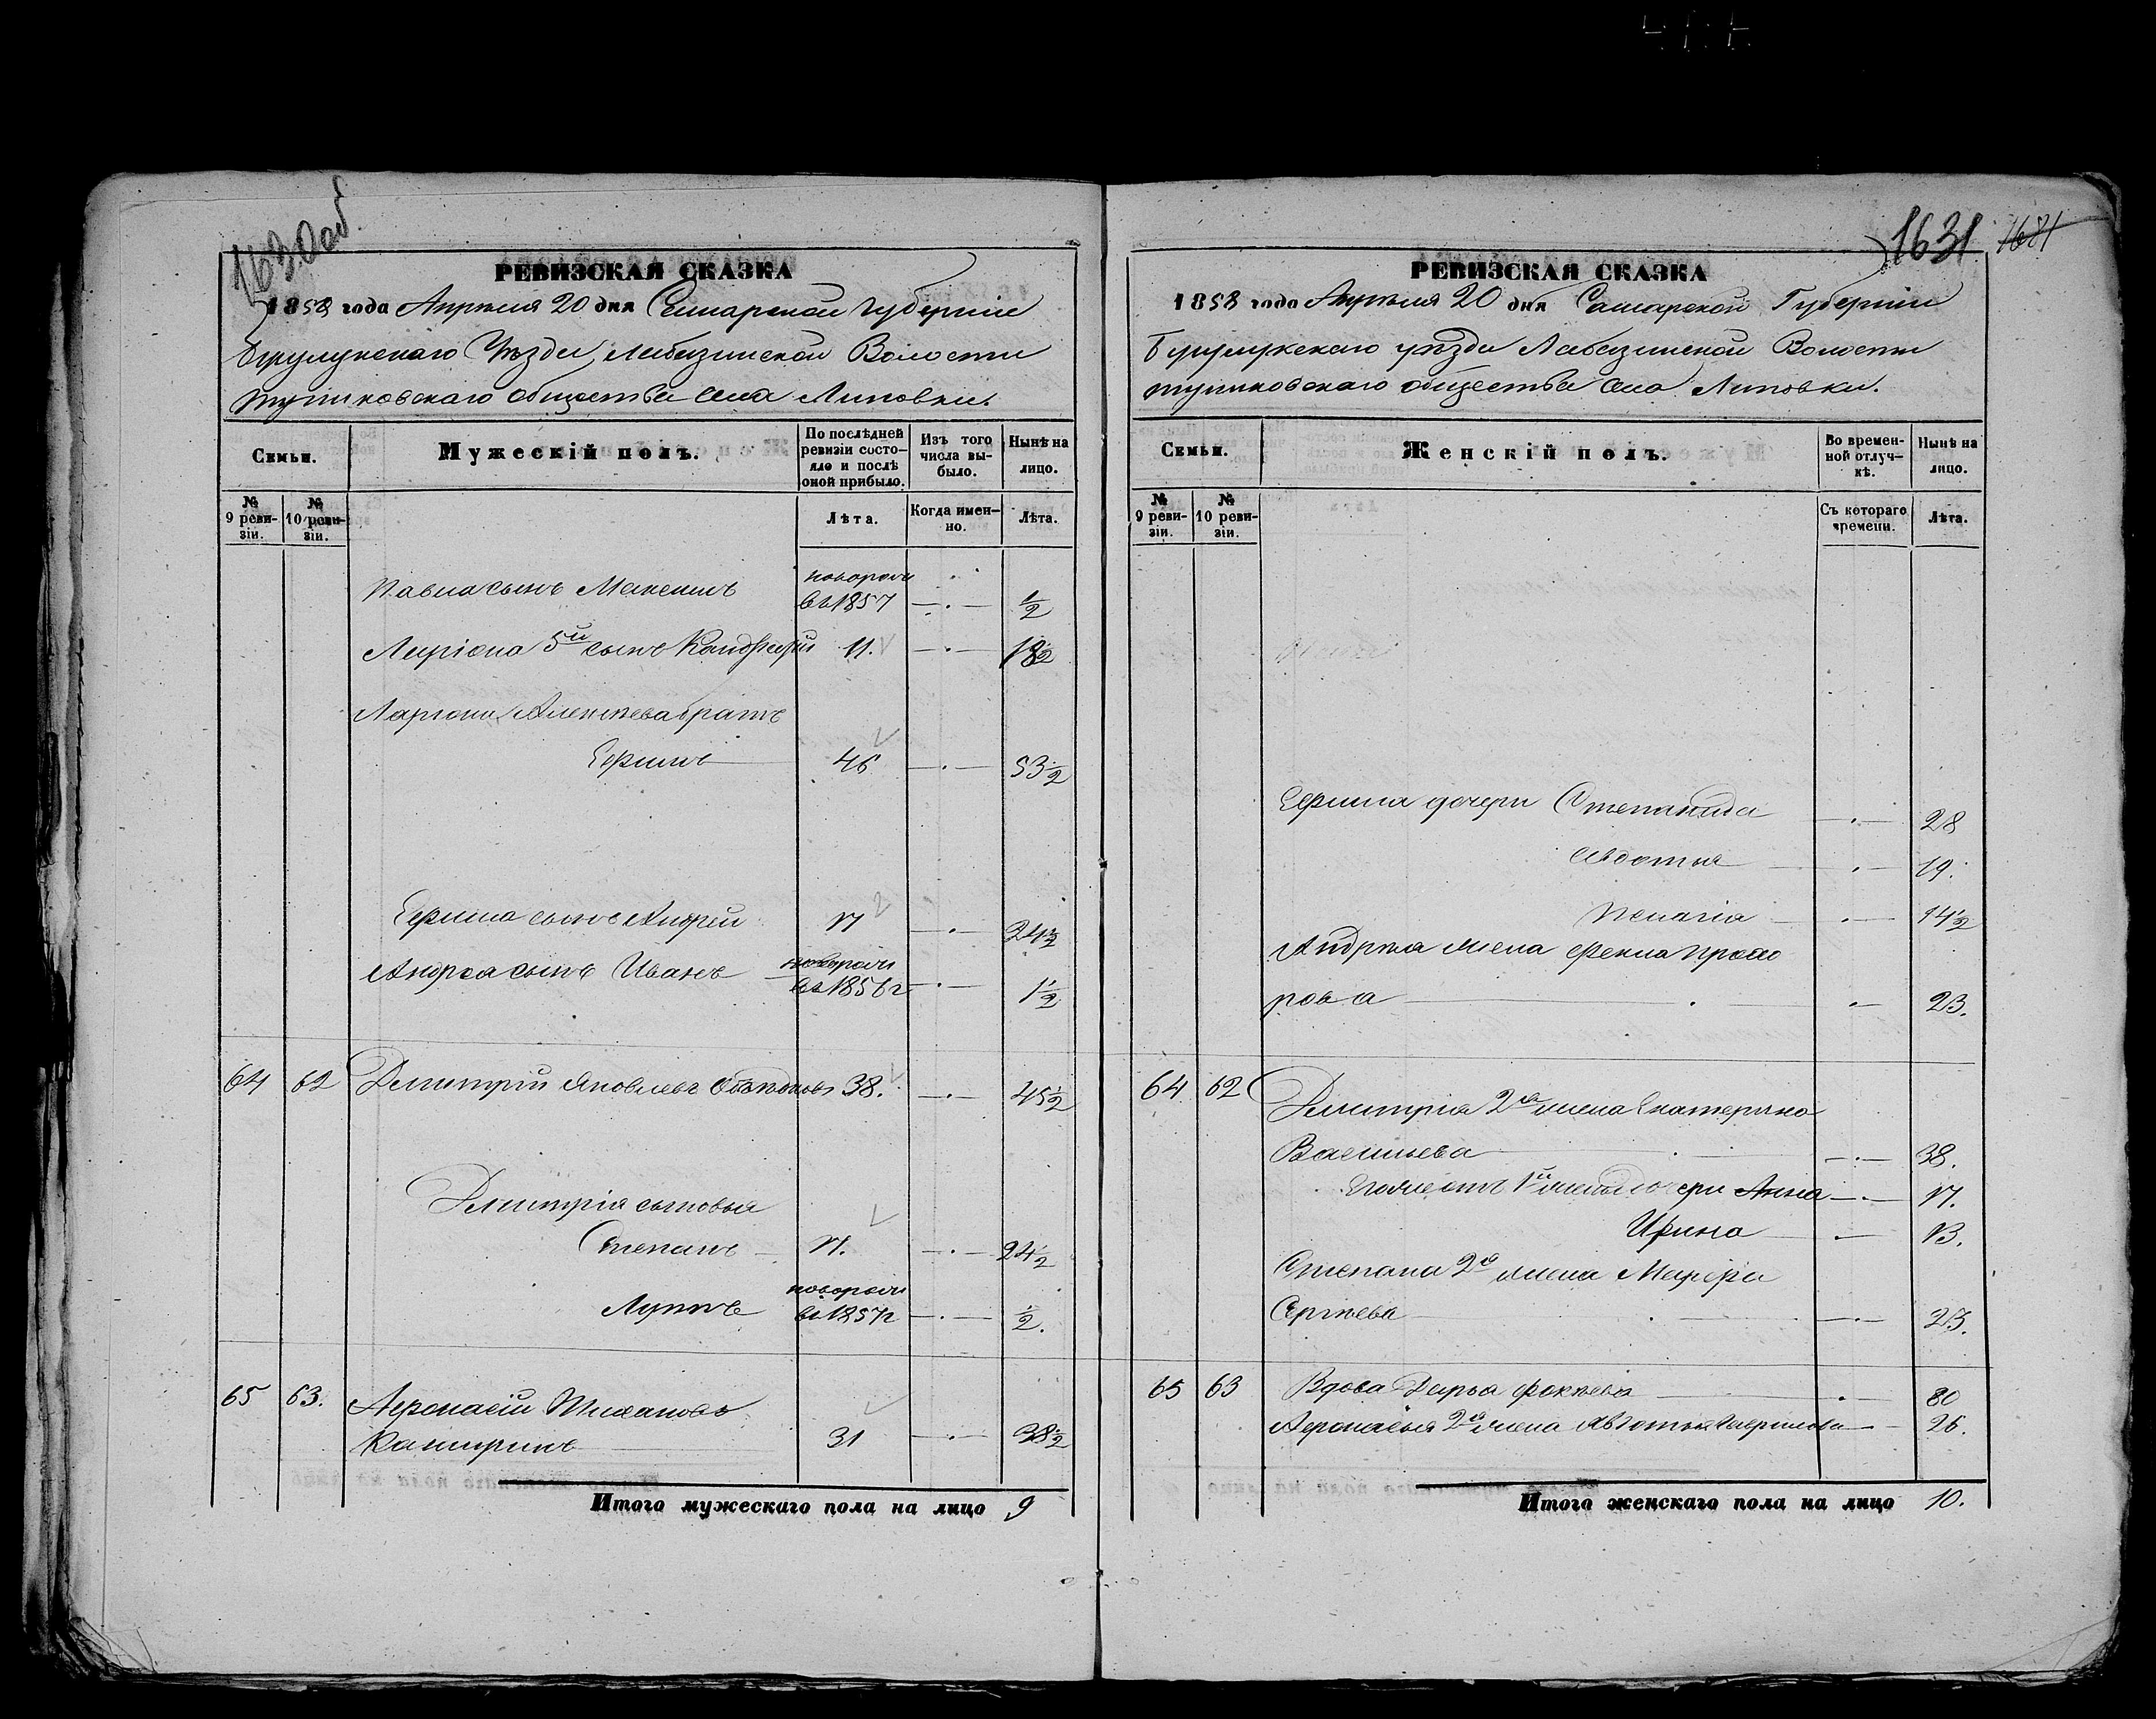 1630об
РЕВИЗСКАЯ СКАЗКА
1858 года Апрѣля 20 дня Самарской Губерніи
Бузулукскаго Уѣзда, Лабазинской Волости
общества села Липовки.
Семьи.
Мужескій полъ.
По послѣдней ревизіи состояло и послѣ оной прибыло.
Изъ того числа выбыло.
Нынѣ на лицо.
№ 9 ревизіи.
№ 10 ревизіи.
Лѣта.
Когда именно.
Лѣта.
Павла сынъ Максимъ новорожд въ 1857 —·— ½
Ларіона 5й сынъ Кондратій 11. —·— 18½
Ларіона Алексѣева братъ
Ефимъ 46 —·— 53½
Ефима сынъ Андрей 17 —·— 24½
Андрея сынъ Иванъ новорожд въ 1856 г —·— 1½
64 62 Дмитрій Яковлевъ 38. —·— 45½
Дмитрія сыновья
Степанъ 17. —·— 24½
Луппъ новорожд въ 1857 г —·— ½.
65 63. Афонасій
Каширинъ 31 —·— 38½
Итого мужескаго пола на лицо 9
1631 1681
РЕВИЗСКАЯ СКАЗКА
1858 года Апрѣля 20 дня Самарской Губерніи
Бузулукскаго уѣзда Лабазинской Волости
общества села Липовки.
Семьи.
Женскій полъ.
Во временной отлучкѣ.
Нынѣ на лицо.
№ 9 ревизіи.
№ 10 ревизіи.
Съ котораго времени.
Лѣта.
Ефима дочери Степанида —·— 28
Авдотья — · — 19.
Пелагія — ·— 14½
Андрѣя жена Фекла Прохо
рова — ·— 23.
64 62 Дмитрія 2я жена Екатерина
Васильева —·— 38.
Его же отъ 1й жены дочери Анна —·— 17.
Ирина ·— 13.
Степана 2я жена Марфа
Сергѣева —·— 23.
65 63 Вдова Дарья Фокѣева · 80
Афонасья 2я жена Авдотья Гаврилова — 26.
Итого женскаго пола на лицо 10.